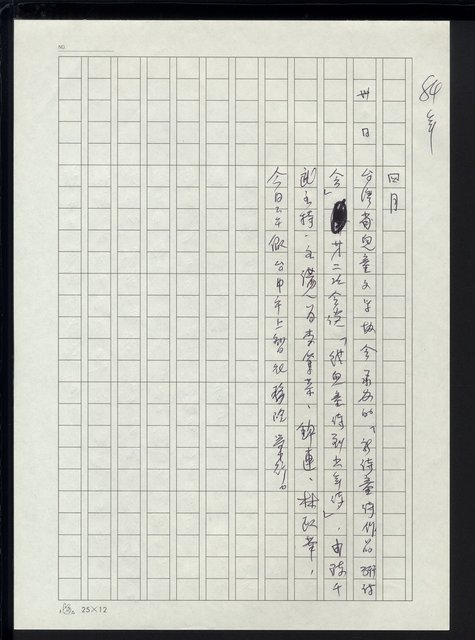 NO.
84年
四月
卅日
台灣省兒童文學協會承辦的「台灣童詩作品研討
會」第二次會議「從兒童詩到少年詩」,由陳千
武主持,主講人為李、錦連、林政華,
今日上午假台中市上智社教院舉行。
25×12